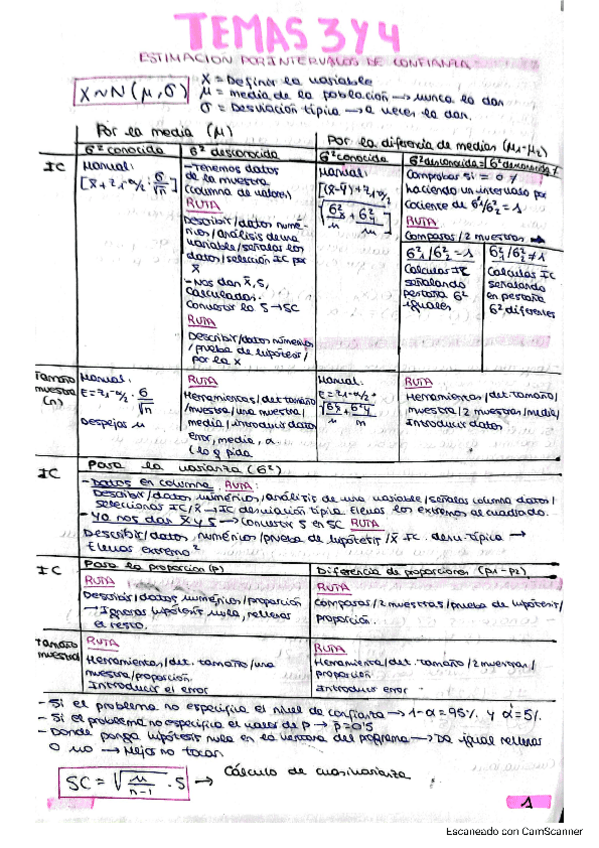 TEMAS 3 Y 4
ESTIMACION POR INTERVALOS DE CONFIANZA
X~N(μ,σ)
X = Definir la variable
μ = media de la población → nunca la dan
σ = Desviación típica → a veces la dan.
Por la media (μ)
Por la diferencia de medias (μ1-μ2)
IC
σ² conocida
Manual:
[x̄ ± z1-α/2 · σ/√n]
σ² desconocida
- Tenemos datos
de la muestra
(columna de valores)
RUTA
Describir/datos numé-
ricos/análisis de una
variable/señalar los
datos/selección IC por
x̄
- Nos dan x̄, S,
calculadas.
Convertir la S → SC
RUTA
Describir/datos numéricos
/prueba de hipótesis/
por la x
σ² conocida
Manual:
[(x̄-ȳ) ± z1-α/2
σ² desconocida
Comprobar si = o ≠
haciendo un intervalo por
cociente de σ²1/σ²2 = 1
RUTA
Comparar/2 muestras
σ²1/σ²2 = 1
Calcular IC
señalando
pestaña σ²
iguales
σ²1/σ²2 ≠ 1
Calcular IC
señalando
en pestaña
σ² diferentes
Tamaño
muestra
(n)
Manual:
E = z1-α/2 · σ/√n
Despejar n
RUTA
Herramientas/det.tamaño
/muestra/una muestra/
media/introducir datos
error, media, α.
(lo q pida
Manual:
RUTA
Herramientas/det.tamaño/
muestra/2 muestras/media/
Introducir datos
IC
Para la varianza (σ²)
- Datos en columna RUTA:
Describir/datos numéricos/análisis de una variable/señalar columna datos/
seleccionar IC/x̄ → IC desviación típica. Elevar los extremos al cuadrado.
- Ya nos dan x̄ y S → Convertir S en SC RUTA
Describir/datos numéricos/prueba de hipótesis/x̄ IC. desv. típica →
Elevar extremo²
IC
Para la proporción (p)
RUTA
Describir/datos numéricos/proporción
→ Ignorar hipótesis nula, rellenar
el resto.
Diferencia de proporciones (p1-p2)
RUTA
Comparar/2 muestras/prueba de hipótesis/
proporción.
Tamaño
muestral
RUTA
Herramientas/det. tamaño/una
muestra/proporción.
Introducir el error
RUTA
Herramienta/det. tamaño/2 muestras/
proporción
Introducir error
- Si el problema no especifica el nivel de confianza → 1-α=95% y α=5%.
- Si el problema no especifica el valor de p → p=0'5
- Donde ponga hipótesis nula en la ventana del programa → Da igual rellenar
o no → Mejor no tocar.
SC = √n/n-1 · S → Cálculo de cuasivarianza
1
Escaneado con CamScanner